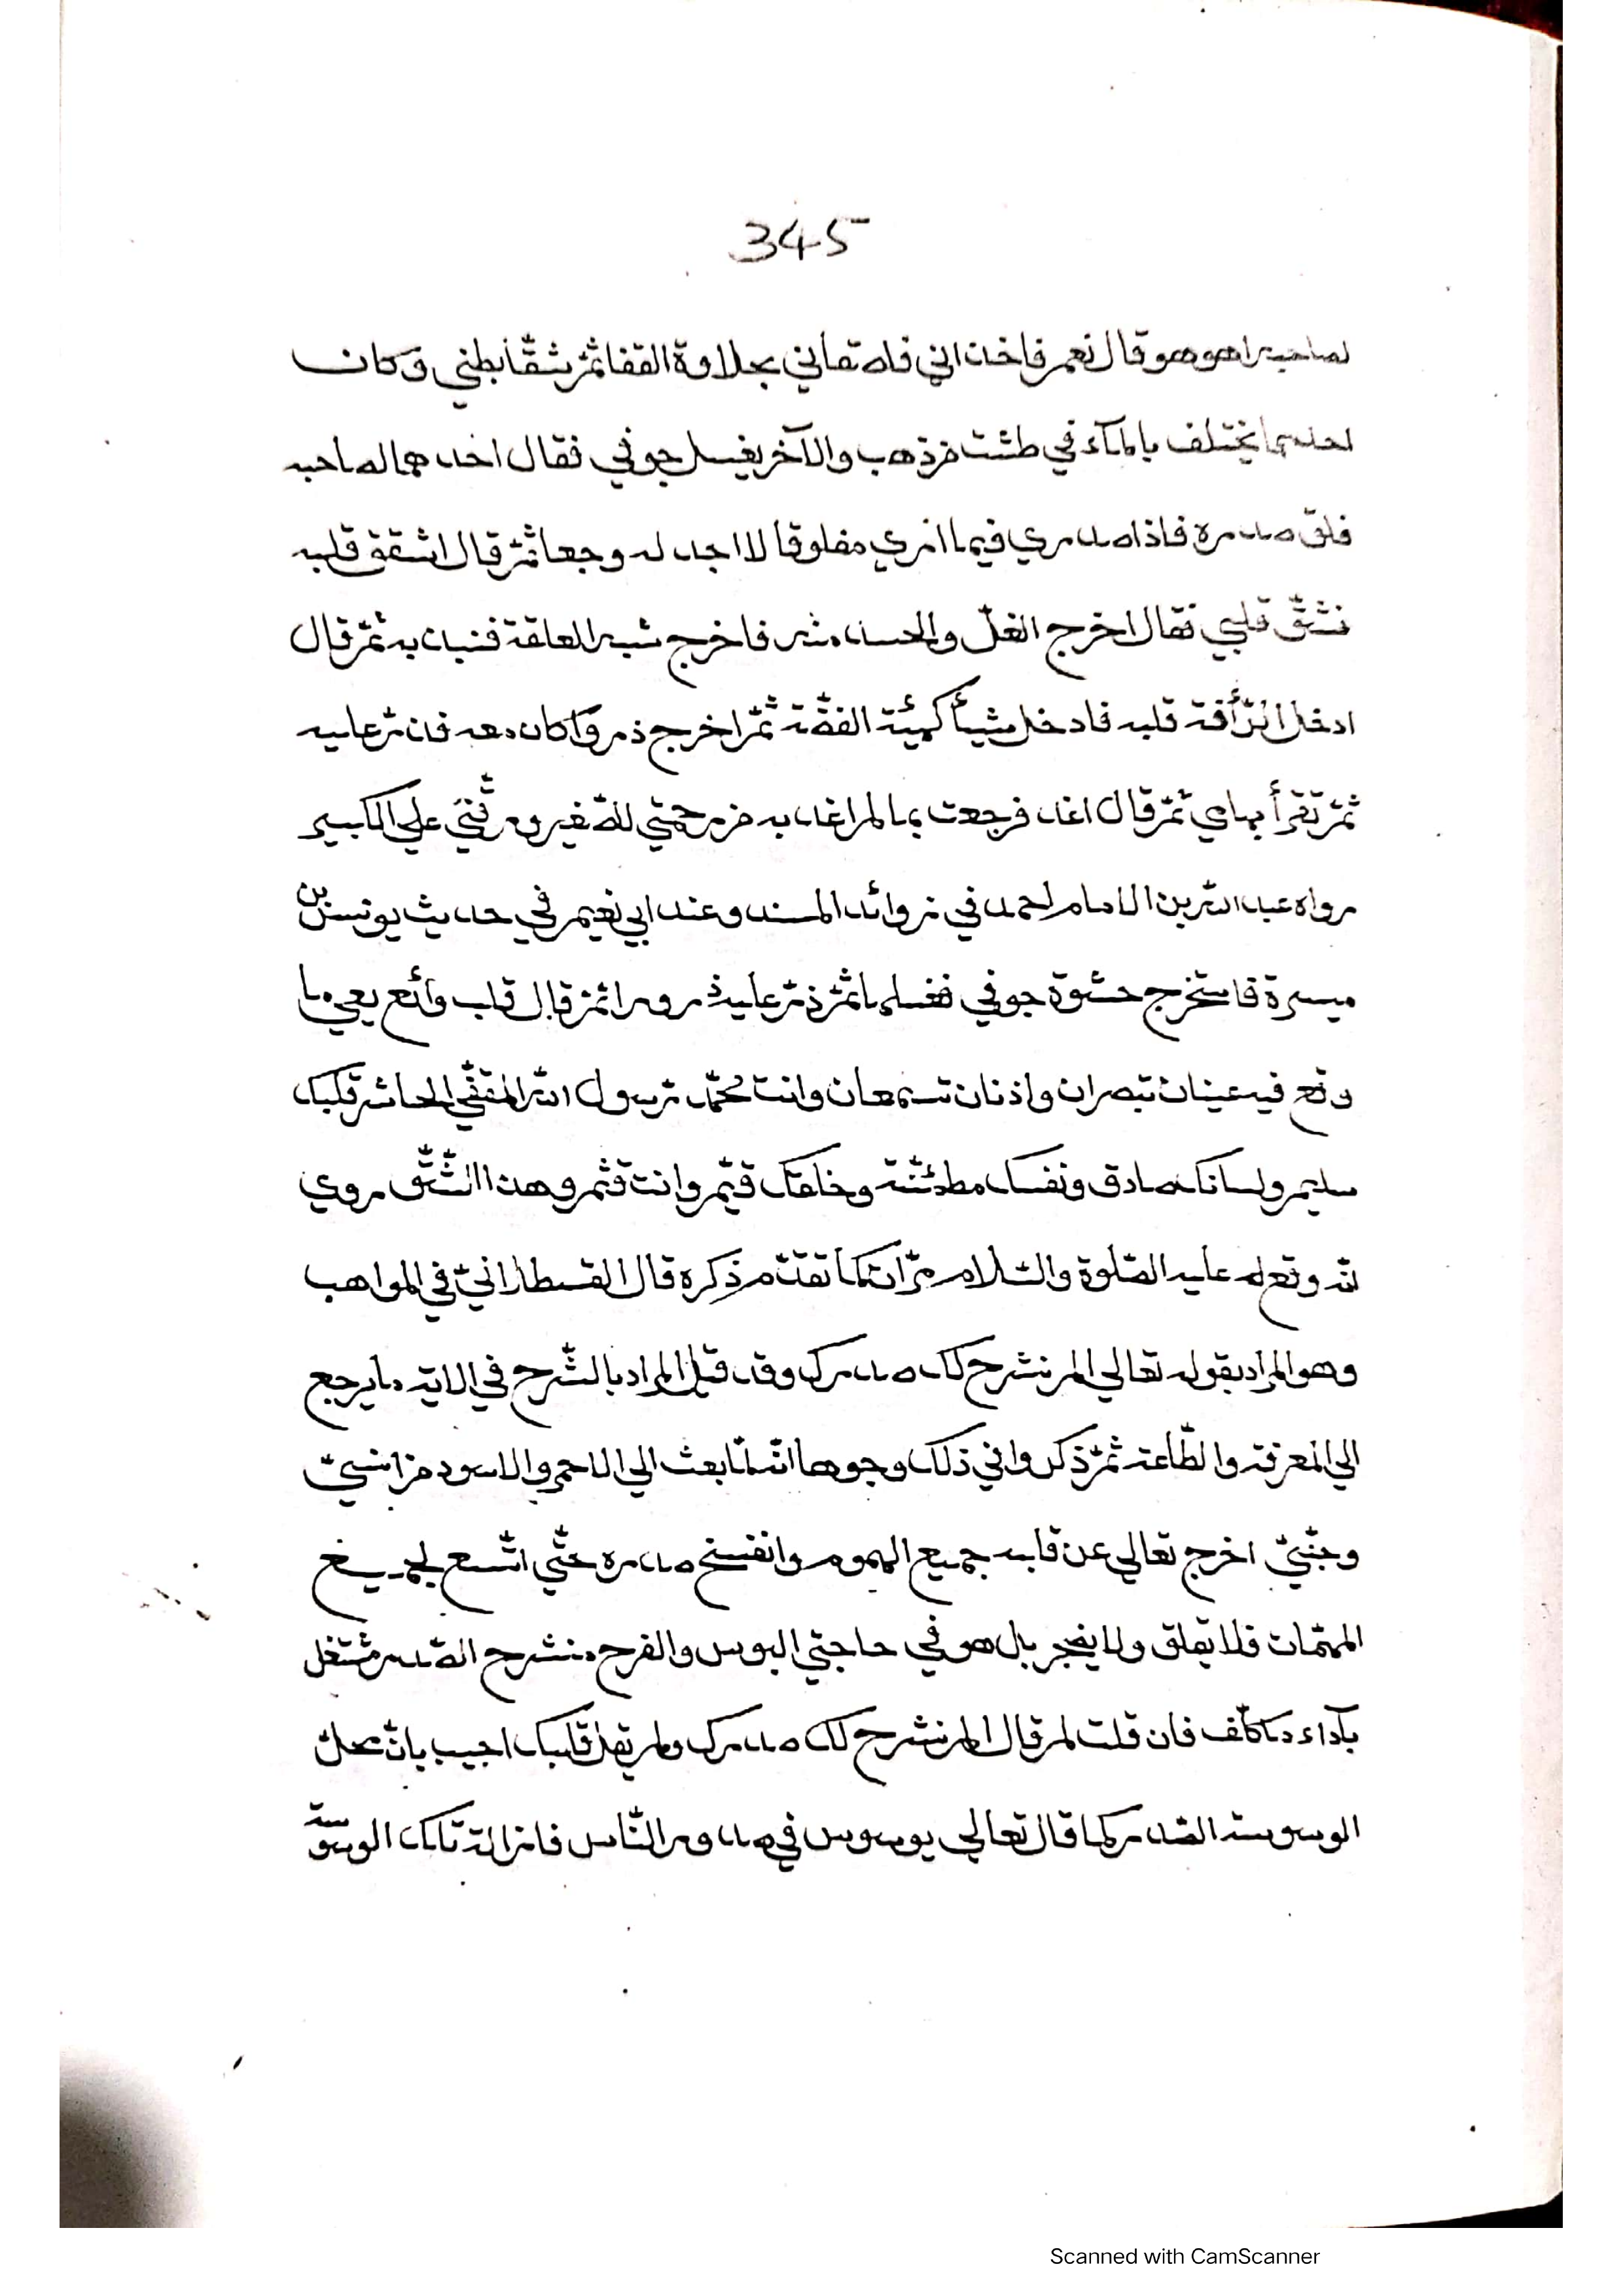 345
لصاحبه اهو هو قال نعم فاخذاني فالصقاني بحلاوة القفا ثمّ شقّا بطني وكان
احدهما يختلف بالمآء في طشت من ذهب والآخر يغسل جوفي فقال احدهما لصاحبه
فلق صدره فاذا صدري فيما اري مفلوقا لا اجد له وجعا ثمّ قال اشقق قلبه
فشقّ قلبي فقال اخرج الغلّ والحسد منه فاخرج شبه العلقة فنبذ به ثمّ قال
ادخل الرّأفة قلبه فادخل شيأ كهيئة الفضّة ثمّ اخرج ذرورا كان معه فذرّ عليه
ثمّ نقر أبهامي ثمّ قال اغد فرجعت بما لم اغد به من رحمتي للصّغير ورقّتي علي الكبير
رواه عبد اللّه بن الامام احمد في زوائد المسند وعند ابي نعيم في حديث يونس بن
ميسرة فاستخرج حشوة جوفي فغسلها ثمّ ذرّ عليه ذرورا ثمّ قال قلب وائع يعي ما
وقع فيه عينان تبصران واذنان تسمعان وانت محمّد رسول اللّه المقفّي الحاشر قلبك
سليم ولسانك صادق ونفسك مطمئنّة وخلقك قيّم وانت قثم وهذا الشّقّ روي
انّه وقع له عليه الصّلوة والسّلام مرّات كما تقدّم ذكره قال القسطلانيّ في المواهب
وهو المراد بقوله تعالي الم نشرح لك صدرك وقد قيل المراد بالشّرح في الاية ما يرجع
الي المعرفة والطّاعة ثمّ ذكروا في ذلك وجوها انّه لمّا بعث الي الاحمر والاسود من انسيّ
وجنّيّ اخرج تعالي عن قلبه جميع الهموم وانفسخ صدره حتّي اتّسع لجميع
المهمّات فلا يقلق ولا يضجر بل هو في حاجتي البوس والفرح منشرح الصّدر مشتغل
بآداء ما كلّف فان قلت لم قال الم نشرح لك صدرك ولم يقل قلبك اجيب بانّ محلّ
الوسوسة الصّدر كما قال تعالي يوسوس في صدور النّاس فازالة تلك الوسوسة
Scanned with CamScanner